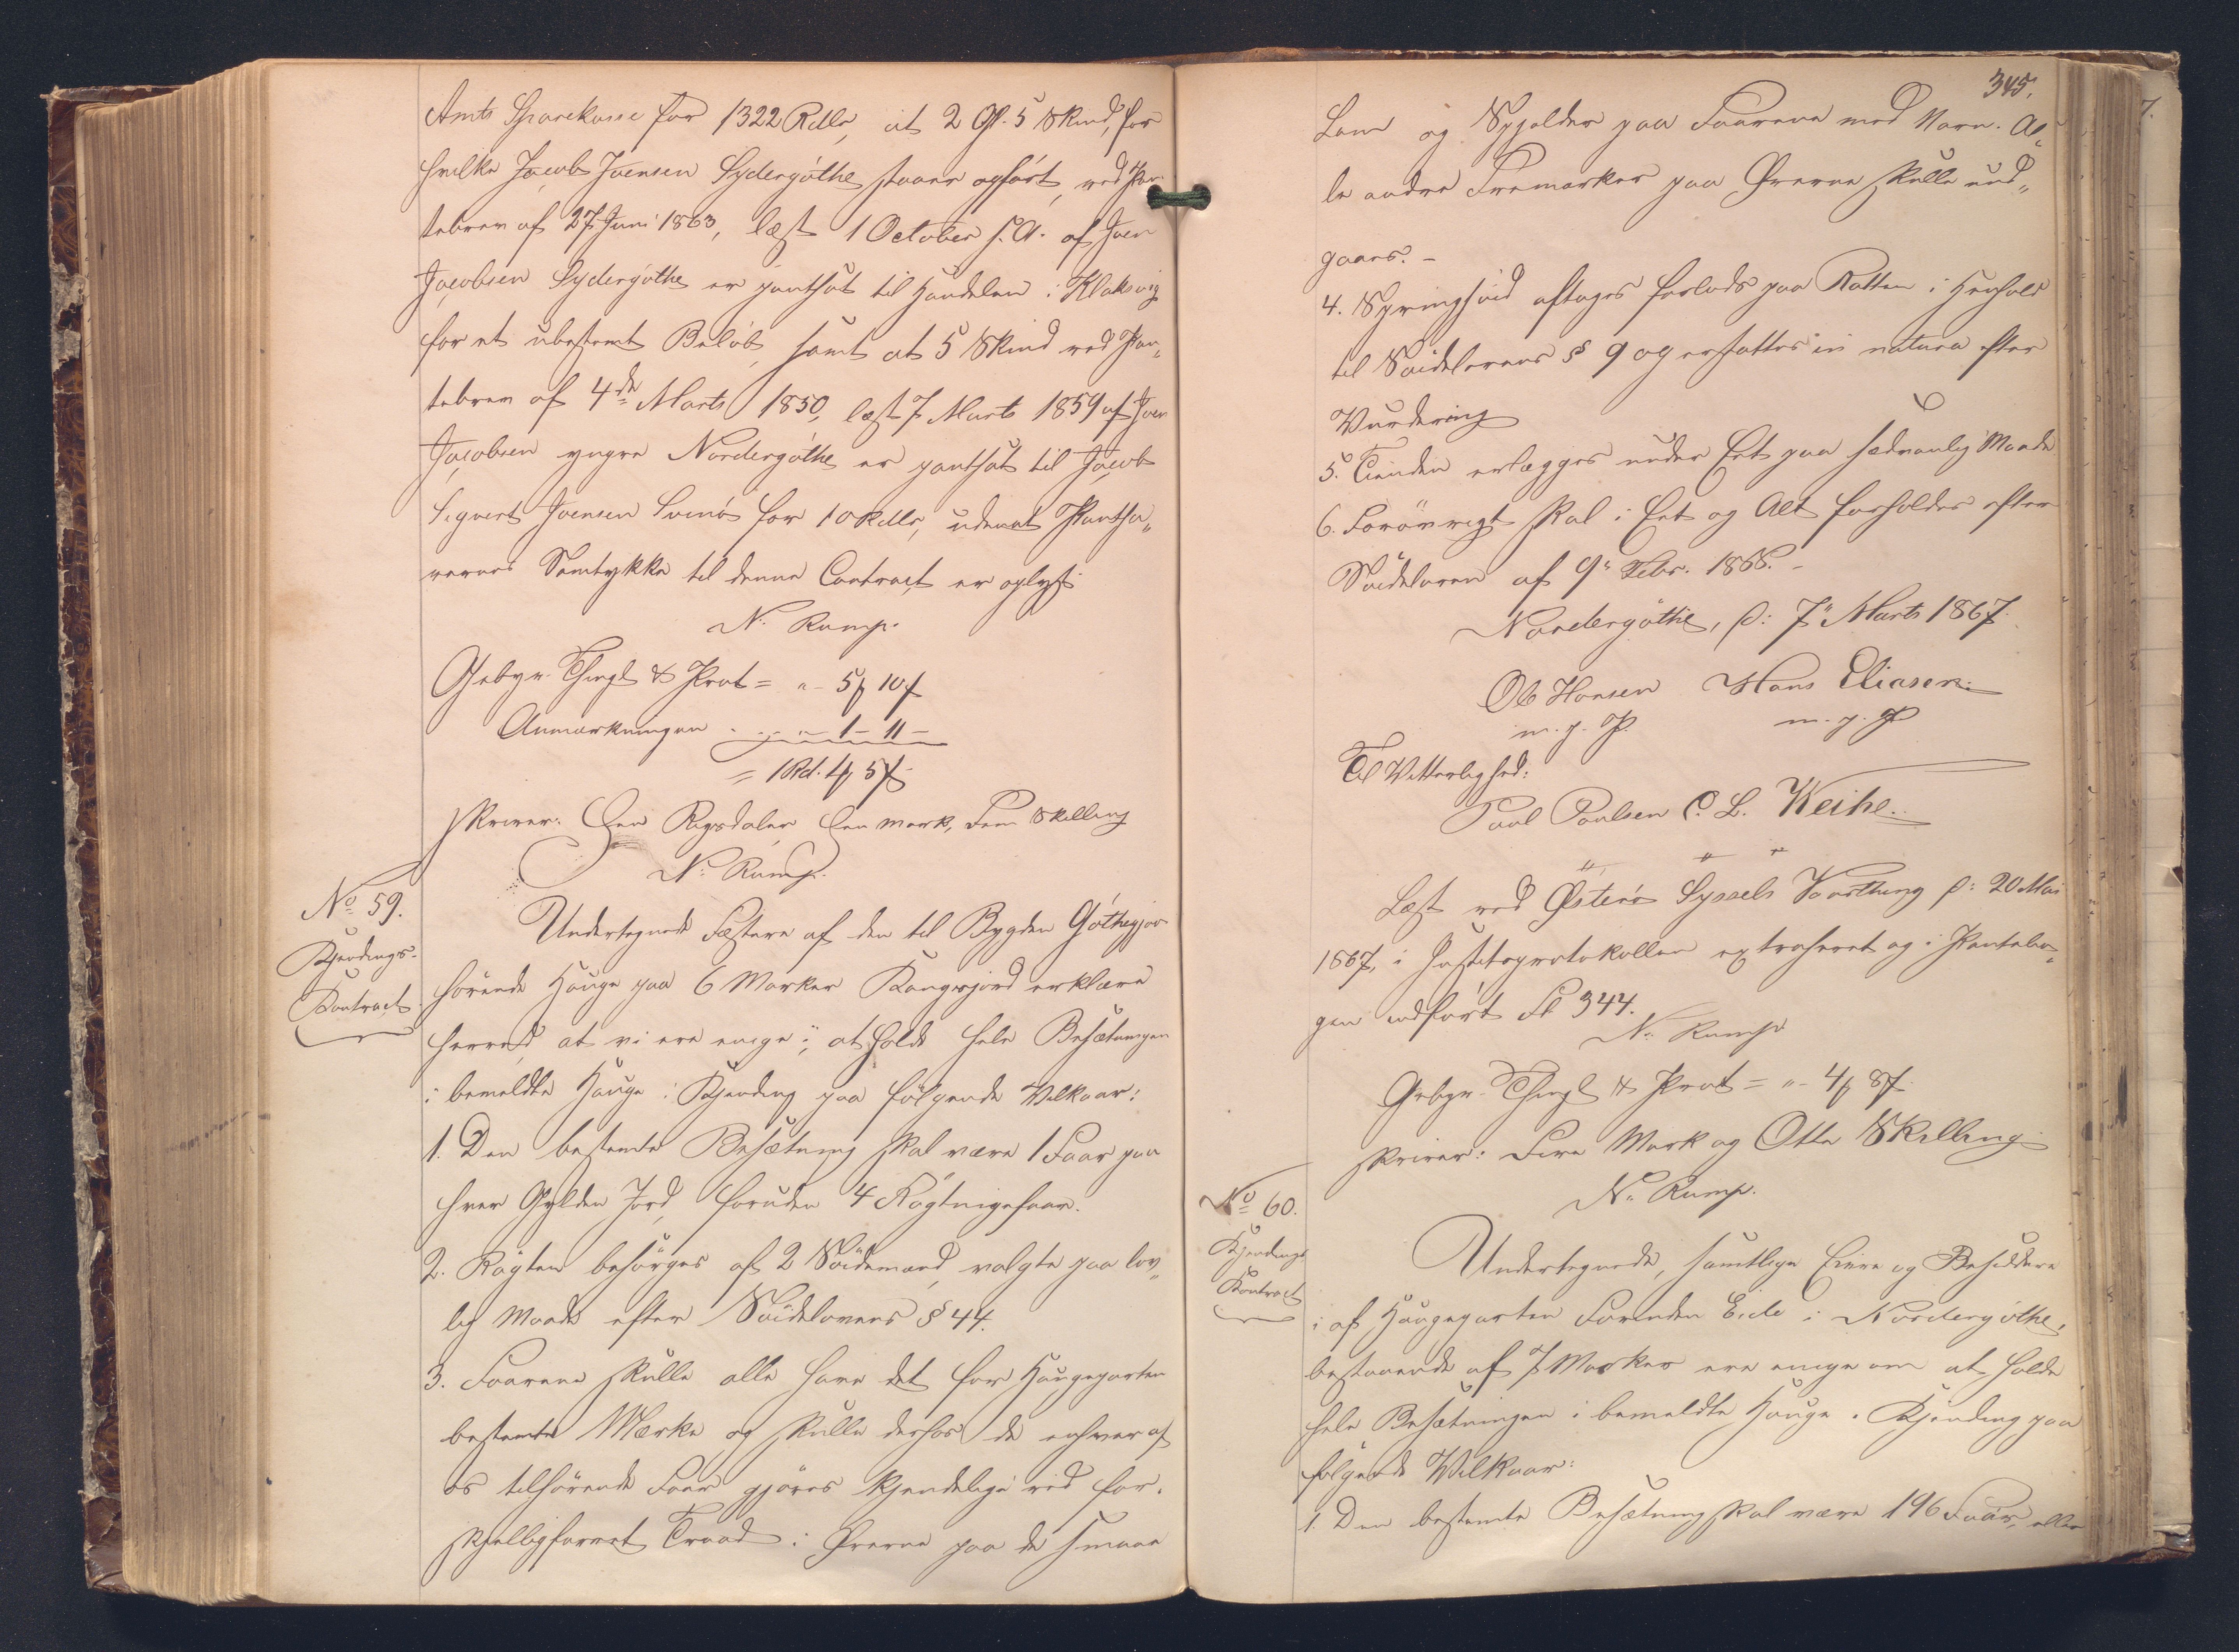 Amts Sparekasse for 1322 Rdlr, at 2 Gl. 5 Skind, for
hvilke Jacob Joensen Sydergøthe staaer opført, ved Pan
tebrev af 27 Juni 1863, læst 1 October s. A. af Joen
Jacobsen Sydergøthe er pantsat til Handelen i Klaksvig
for et ubestemt Beløb, samt at 5 Skind ved Pan„
tebrev af 4de Marts 1850, læst 7 Marts 1859 af Joen
Jacobsen yngre Nordergøthe er pantsat til Jacob
Sigvert Joensen Svinø for 10 Rdlr, udenat Pantha„
vernes Samtykke til denne Contract er oplyst.
N. Rump.
Gebyr. Thingl & Prot = „ - 5 10
Anmærkningen . . . „ - 1 - 11 -
= 1 Rd. 4 5
skriver: Een Rigsdaler Een mark, Fem Skilling
N. Rump.
No 59.
Kjendings-
Kontract
Undertegnede Fæstere af den til Bygden Gøthegjov
hørende Hauge paa 6 Marker Kongsjord erklære
herved at vi ere enige i, at holde hele Besætningen
i bemeldte Hauge i Kjending paa følgende Vilkaar:
1. Den bestemte Besætning skal være 1 Faar paa
hver Gylden Jord, foruden 4 Røgtningsfaar.
2. Røgten besørges af 2 Söidemænd, valgte paa lov„
lig Maade efter Söidelovens § 44.
3. Faarene skulle alle have det for Haugeparten
bestemte Mærke og skulle derhos de enhver af
os tilhørende Faar gjøres kjendelige ved for-
skjelligfarvet Traad i Ørerne paa de smaae
345.
Lam og Spjolder paa Faarene med Navn. Al„
le andre Fremærker paa Ørerne skulle und„
gaaes. -
4. Springhöid aftages forlods paa Retten i Henhold
til Söidelovens § 9 og erstattes in natura efter
Vurdering
5. Tienden erlægges under Eet paa sædvanlig Maade
6. Forøvrigt skal i Eet og Alt forholdes efter
Söideloven af 9. Febr. 1866. -
Nordergøthe, d: 7 Marts 1867.
Ole Hansen Hans Eliasen.
m. p. P. m. p. P
Til Vitterlighed:
Poul Poulsen C. L. Weihe.
„ „ „
Læst ved Østerø Syssels Vaarthing d: 20 Mai
1867, i Justitsprotokollen extraheret og i Pantebo„
gen indført Fl 344.
N. Rump
Gebyr. Thingl & Prot = „ - 4 8
skriver: Fire Mark og Otte Skilling
N. Rump.
No 60.
Kjendings
Kontract
Undertegnede, samtlige Eiere og Besiddere
i af Haugeparten Forinden Eide i Nordergøthe,
bestaaende af 7 Marker ere enige om at holde
hele Besætningen i bemeldte Hauge i Kjending paa
følgende Vilkaar:
1. Den bestemte Besætning skal være 196 Faar, eller